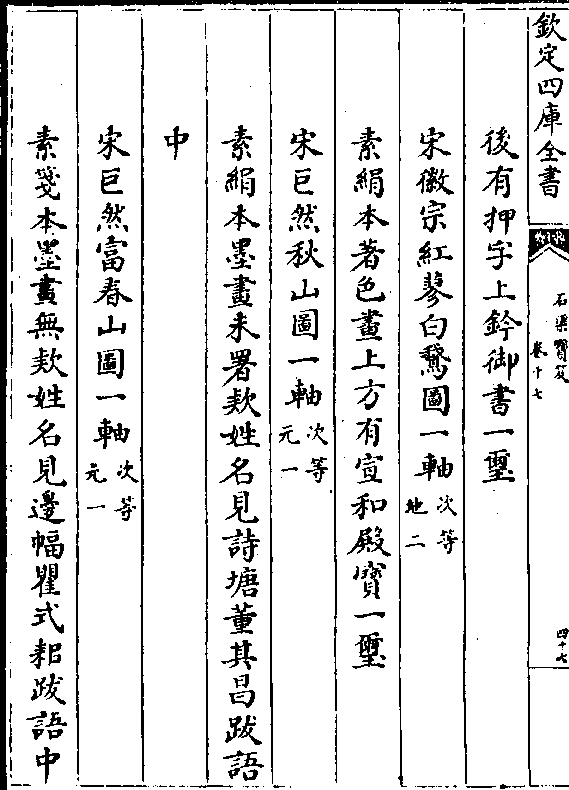 欽定四庫全書
石渠寳笈
卷十七
四十七
後有押字上鈐御書一璽
宋徽宗紅蓼白鵞圖一軸次等地二
素絹本著色畫上方有宣和殿寳一璽
宋巨然秋山圖一軸次等元一
素絹本墨畫未署欵姓名見詩塘董其昌跋語
中
宋巨然富春山圖一軸次等元一
素箋本墨畫無欵姓名見邊幅瞿式耜跋語中